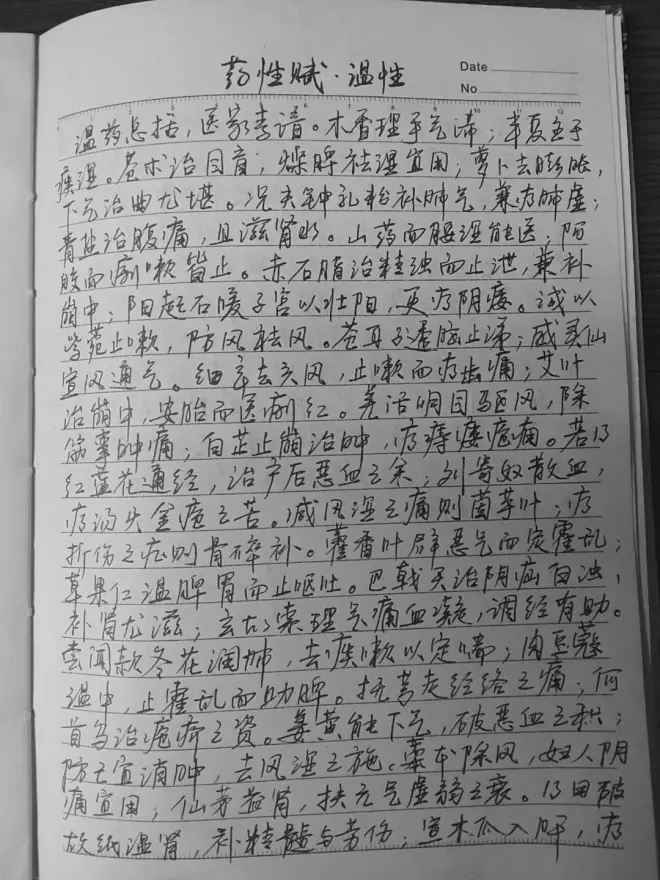 药性赋·温性
Date
No
温药总括，医家素谙。木香理乎气滞；半夏主于
痰湿。苍术治目盲，燥脾祛湿宜用；萝卜去膨胀，
下气治面尤堪。况夫钟乳粉补肺气，兼疗肺虚；
青盐治腹痛，且滋肾水。山药而腰湿能医；阿
胶而痢嗽皆止。赤石脂治精浊而止泄，兼补
崩中；阳起石暖子宫以壮阳，更疗阴痿。诚以
紫菀止嗽，防风祛风。苍耳子透脑止涕；威灵仙
宣风通气。细辛去头风，止嗽而疗齿痛；艾叶
治崩中，安胎而医痢红。羌活明目驱风，除
筋挛肿痛；白芷止崩治肿，疗痔瘘疮痈。若乃
红蓝花通经，治产后恶血之余；刘寄奴散血，
疗汤火金疮之苦。减风湿之痛则茵芋叶；疗
折伤之症则骨碎补。藿香叶辟恶气而定霍乱；
草果仁温脾胃而止呕吐。巴戟天治阴疝白浊，
补肾尤滋；玄胡索理气痛血凝，调经有助。
尝闻款冬花润肺，去痰嗽以定喘；肉豆蔻
温中，止霍乱而助脾。抚芎走经络之痛；何
首乌治疮疥之资。姜黄能下气，破恶血之积；
防己宜消肿，去风湿之施。藁本除风，妇人阴
痛宜用；仙茅益肾，扶元气虚弱之衰。乃曰破
故纸温肾，补精髓与劳伤；宣木瓜入肝，疗